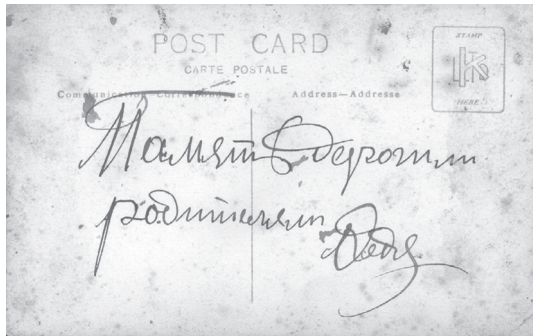 POST CARD
CARTE POSTALE
Communication—Correspondence Address—Addresse
STAMP
HERE
Память дорогим
родителям